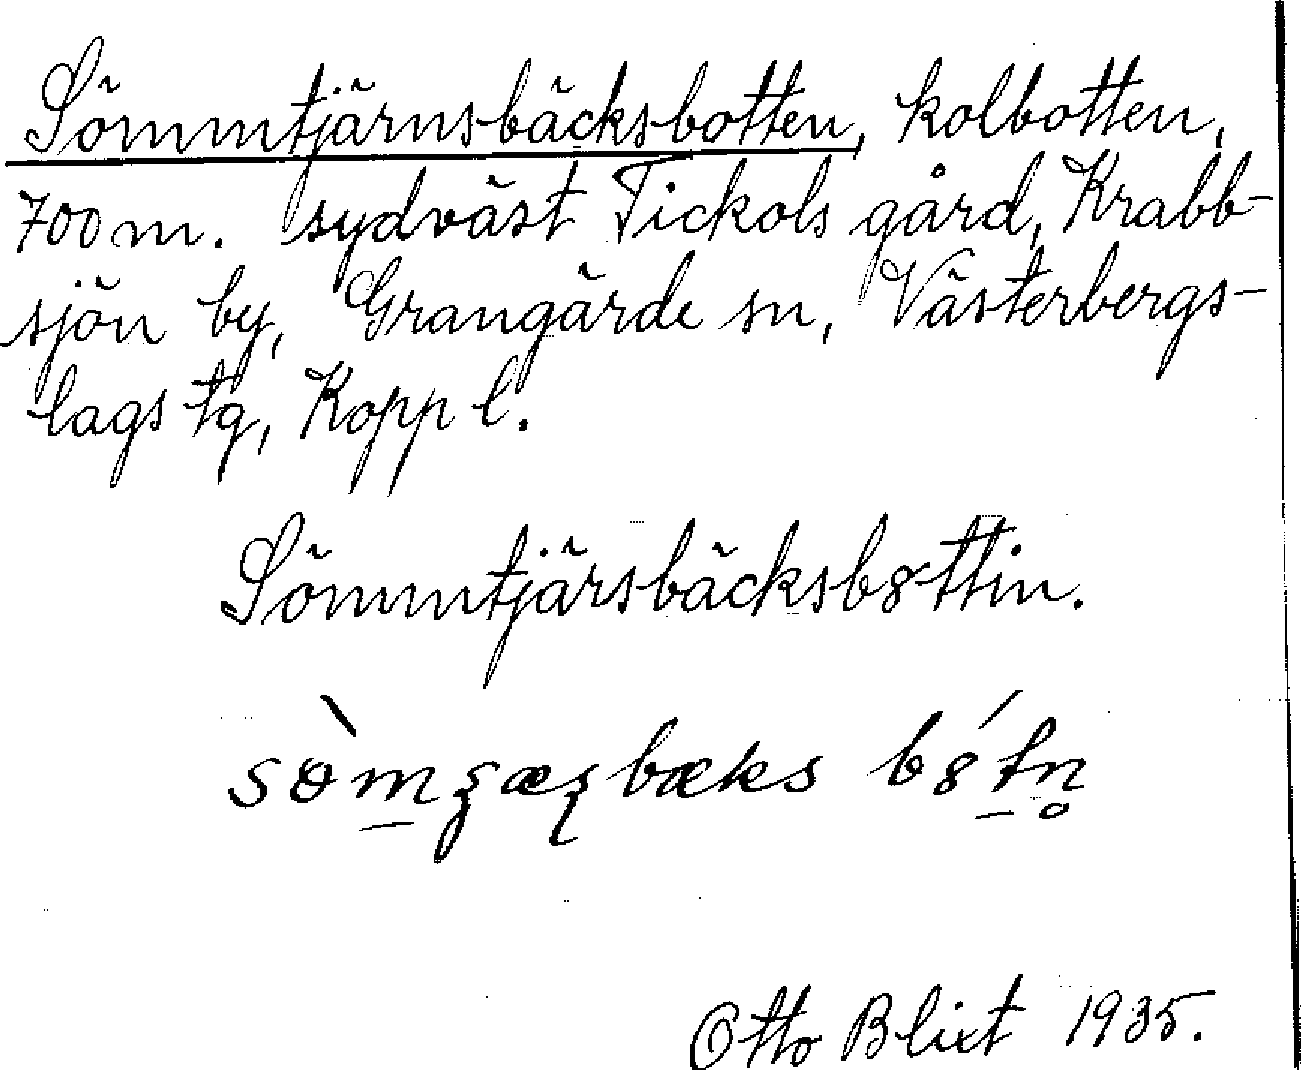 Sömmtjärnsbäcksbotten, kolbotten,
700 m. sydväst Tickols gård, Krabb-
sjön by, Grangärde sn, Västerbergs-
lags tg, Kopp l.
Sömmtjärsbäcksb8ttin.
Otto Blixt 1935.